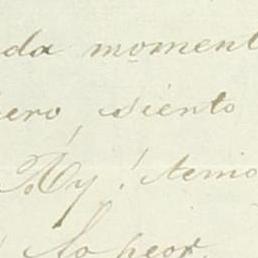 da moment
ero, siento
Ay! temo
lo peor.